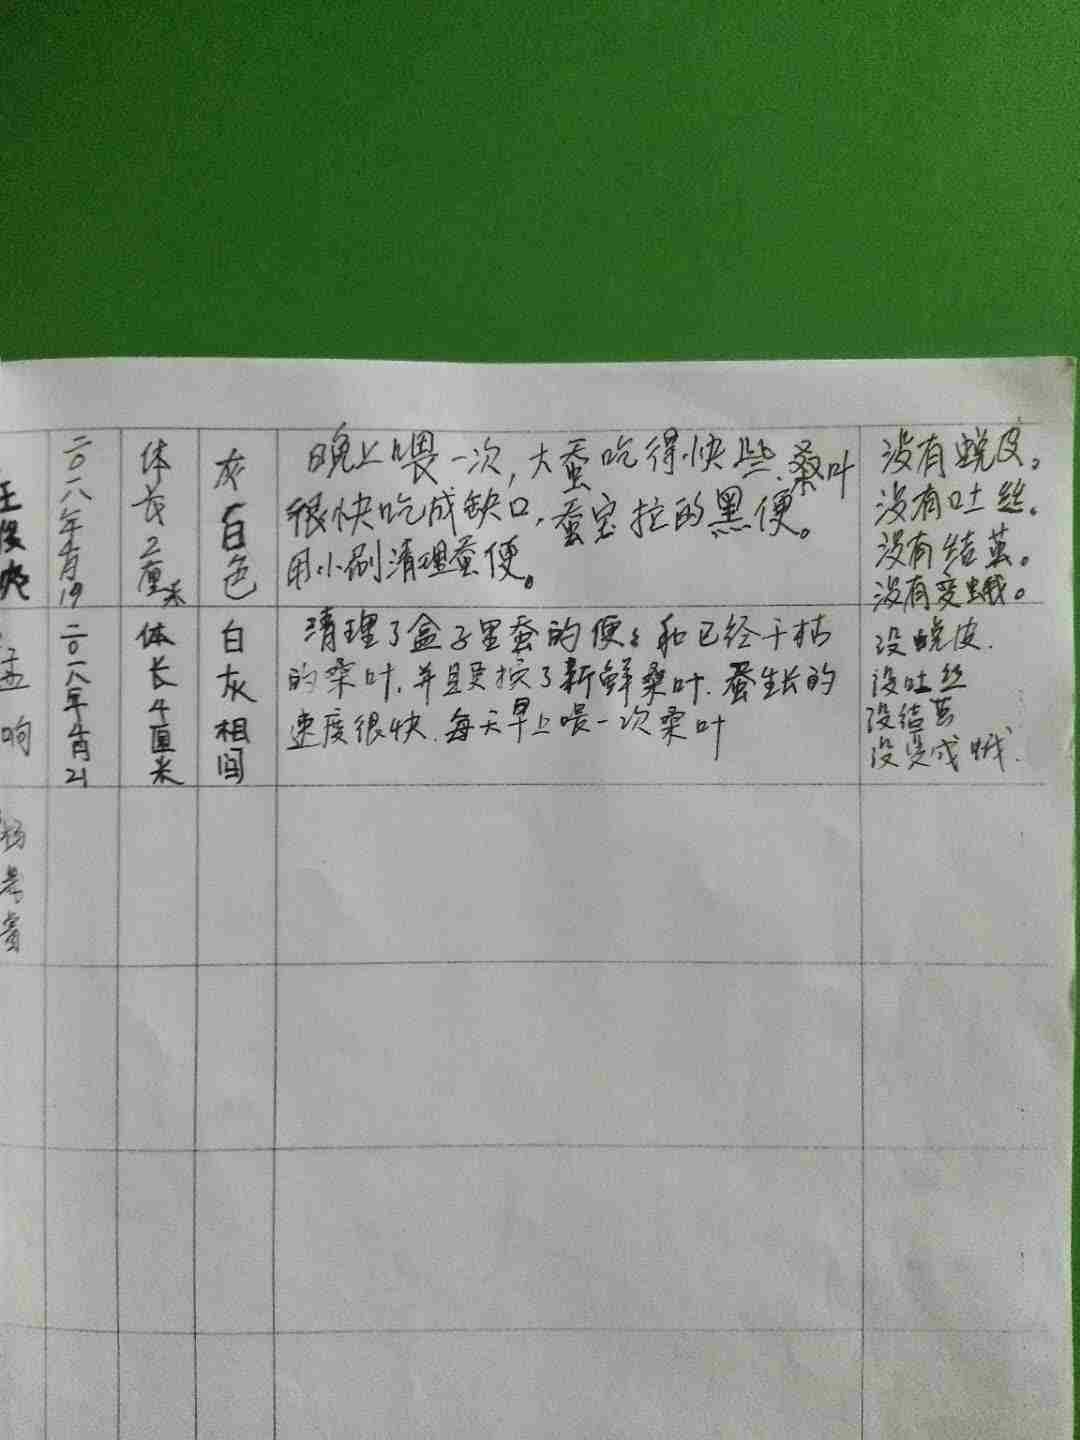 二〇一八年4月19
体长2厘米
灰白色
晚上喂一次,大蚕吃得快些,桑叶
很快吃成缺口,蚕宝拉的黑便。
用小刷清理蚕便。
没有蜕皮。
没有吐丝。
没有结茧。
没有变蛾。
孟响
二〇一八年4月21
体长4厘米
白灰相间
清理了盒子里蚕的便便和已经干枯
的桑叶,并且更换了新鲜桑叶.蚕生长的
速度很快.每天早上喂一次桑叶
没蜕皮.
没吐丝
没结茧
没变成蛾.